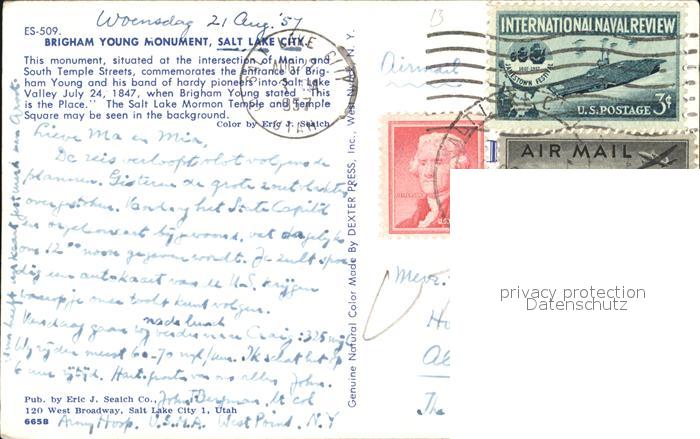 Woensdag 21 Aug. '57
ES-509.
BRIGHAM YOUNG MONUMENT, SALT LAKE CITY
This monument, situated at the intersection of Main and
South Temple Streets, commemorates the entrance of Brig-
ham Young and his band of hardy pioneers into Salt Lake
Valley July 24, 1847, when Brigham Young stated "This
is the Place." The Salt Lake Mormon Temple and Temple
Square may be seen in the background.
Color by Eric J. Seaich
Lieve Ma en Mia,
De reis verloopt vlot volgens de
plannen. Gisteren de grote zoutvlakte
overgestoken. Vandaag het State Capitol
en orgelconcert bijgewoond, dat dagelijks
om 12 noon gegeven wordt. Je zult spoe
dig een autokaart van de U.S. krijgen
waarop je onze tocht kunt volgen.
Vandaag gaan wij na de lunch
verder naar Craig: 335 mijl
Wij rijden meest 60-70 mijl/uur. Ik schat het op
6 uur rijtijd. Hart. groeten van ons allen, John.
Pub. by Eric J. Seaich Co.,
120 West Broadway, Salt Lake City 1, Utah
6658
John Lt col
Army Hosp. U.S.M.A. West Point, N.Y
Genuine Natural Color Made By DEXTER PRESS, Inc., West Nyack, N. Y.
SALT LAKE CITY
AUG
1957
UTAH
13
Airmail
INTERNATIONAL NAVAL REVIEW
JAMESTOWN FESTIVAL
1607-1957
U.S. POSTAGE 3¢
AIR MAIL
JEFFERSON
U.S.
Mevr.
The
privacy protection
Datenschutz